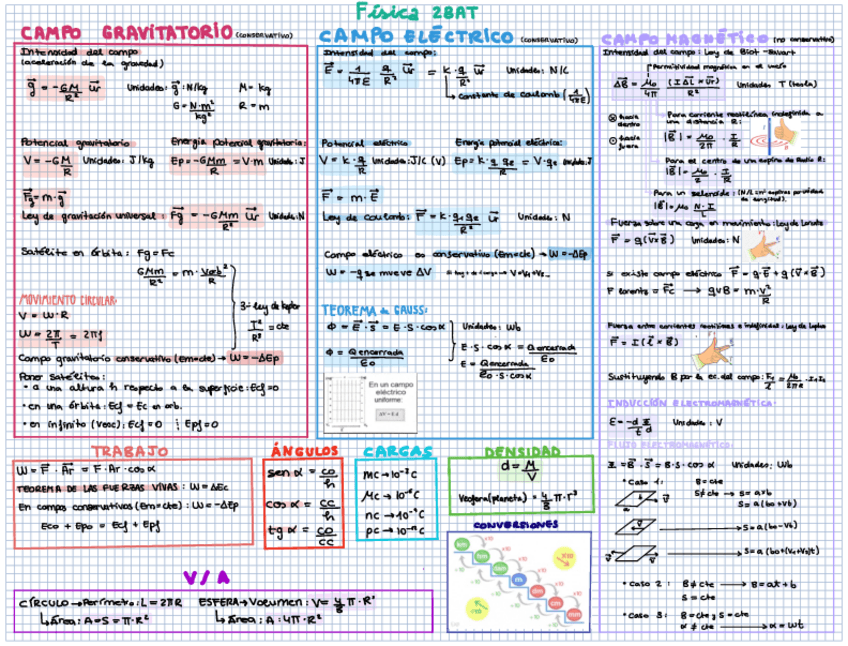 Física 2BAT
CAMPO GRAVITATORIO (CONSERVATIVO)
Intensidad del campo
(aceleración de la gravedad)
g = -GM/R² ur Unidades: g: N/kg M= kg
G= N·m²/kg² R= m
Potencial gravitatorio
V = -GM/R Unidades: J/kg
Energía potencial gravitatoria:
Ep = -GMm/R = V·m Unidades: J
Fg = m·g
Ley de gravitación universal: Fg = -GMm/R² ur Unidades: N
Satélite en órbita: Fg = Fc
GMm/R² = m · Vorb²/R
MOVIMIENTO CIRCULAR:
V = ω·R
ω = 2π/T = 2πf
3ª ley de kepler
T²/R³ = cte
Campo gravitatorio conservativo (Em=cte) → W = -ΔEp
Poner satélites:
• a una altura h respecto a la superficie: Ecf=0
• en una órbita: Ecf = Ec en orb.
• en infinito (Vesc): Ecf = 0 ; Epf = 0
CAMPO ELÉCTRICO (CONSERVATIVO)
Intensidad del campo:
E = 1/4πE q/R² ur = k·q/R² ur Unidades: N/C
constante de coulomb (1/4πE)
Potencial eléctrico
V = k·q/R Unidades: J/C (V)
Energía potencial eléctrica:
Ep = k·q qe/R = V·qe Unidades: J
F = m·E
Ley de coulomb: F = k·q+qe/R² ur Unidades: N
Campo eléctrico es conservativo (Em=cte) → W = -ΔEp
W = -q se mueve ΔV
TEOREMA de GAUSS:
Φ = E · S = E·S·cosα Unidades: Wb
Φ = Qencerrada/E0
E·S·cosα = Qencerrada/E0
E = Qencerrada/E0·S·cosα
En un campo
eléctrico
uniforme:
ΔV = E·d
CAMPO MAGNÉTICO (no conservativo)
Intensidad del campo: Ley de Biot-Savart
Permitividad magnética en el vacío
ΔB = μ0/4π (I Δl × ur)/R² Unidades T (tesla)
⊗ hacia
dentro
⊙ hacia
fuera
Para corriente rectilínea indefinida a
una distancia R:
|B| = μ0/2π · I/R
Para el centro de una espira de Radio R:
|B| = μ0/2 · I/R
Para un solenoide:
|B| = μ0 N·I/L
Fuerza sobre una carga en movimiento: Ley de Lorentz
F = q(v×B) Unidades: N
si existe campo eléctrico F = q·E + q(v×B)
F Lorentz = Fc → qvB = m·v²/R
Fuerza entre corrientes rectilíneas e indefinidas: Ley de Laplace
F = I(l×B)
Sustituyendo B por la ec. del campo:
INDUCCIÓN ELECTROMAGNÉTICA:
E = -dΦ/dt Unidades: V
FLUJO ELECTROMAGNÉTICO:
Φ = B · S = B·S·cosα Unidades: Wb
• Caso 1: B = cte
S≠cte → S = a·b
S = a(b0+vt)
S = a(b0-vt)
S = a(b0+(v1+v2)t)
• Caso 2: B≠cte → B = at+b
S = cte
• Caso 3: B = cte y S = cte
α ≠ cte → α = ωt
TRABAJO
W = F · Δr = F·Δr·cosα
TEOREMA DE LAS FUERZAS VIVAS: W = ΔEc
En campos conservativos (Em=cte): W = -ΔEp
Eco + Epo = Ecf + Epf
ÁNGULOS
sen α = co/h
cos α = cc/h
tg α = co/cc
CARGAS
mC → 10⁻³ C
μC → 10⁻⁶ C
nC → 10⁻⁹ C
pC → 10⁻¹² C
DENSIDAD
d = M/V
Vesfera (planeta) = 4/3 π·r³
CONVERSIONES
km
hm
dam
m
dm
cm
mm
V/A
CÍRCULO → Perímetro: L = 2πR ESFERA → Volumen: V = 4/3 π·R³
Área: A = S = π·R² Área: A: 4π·R²